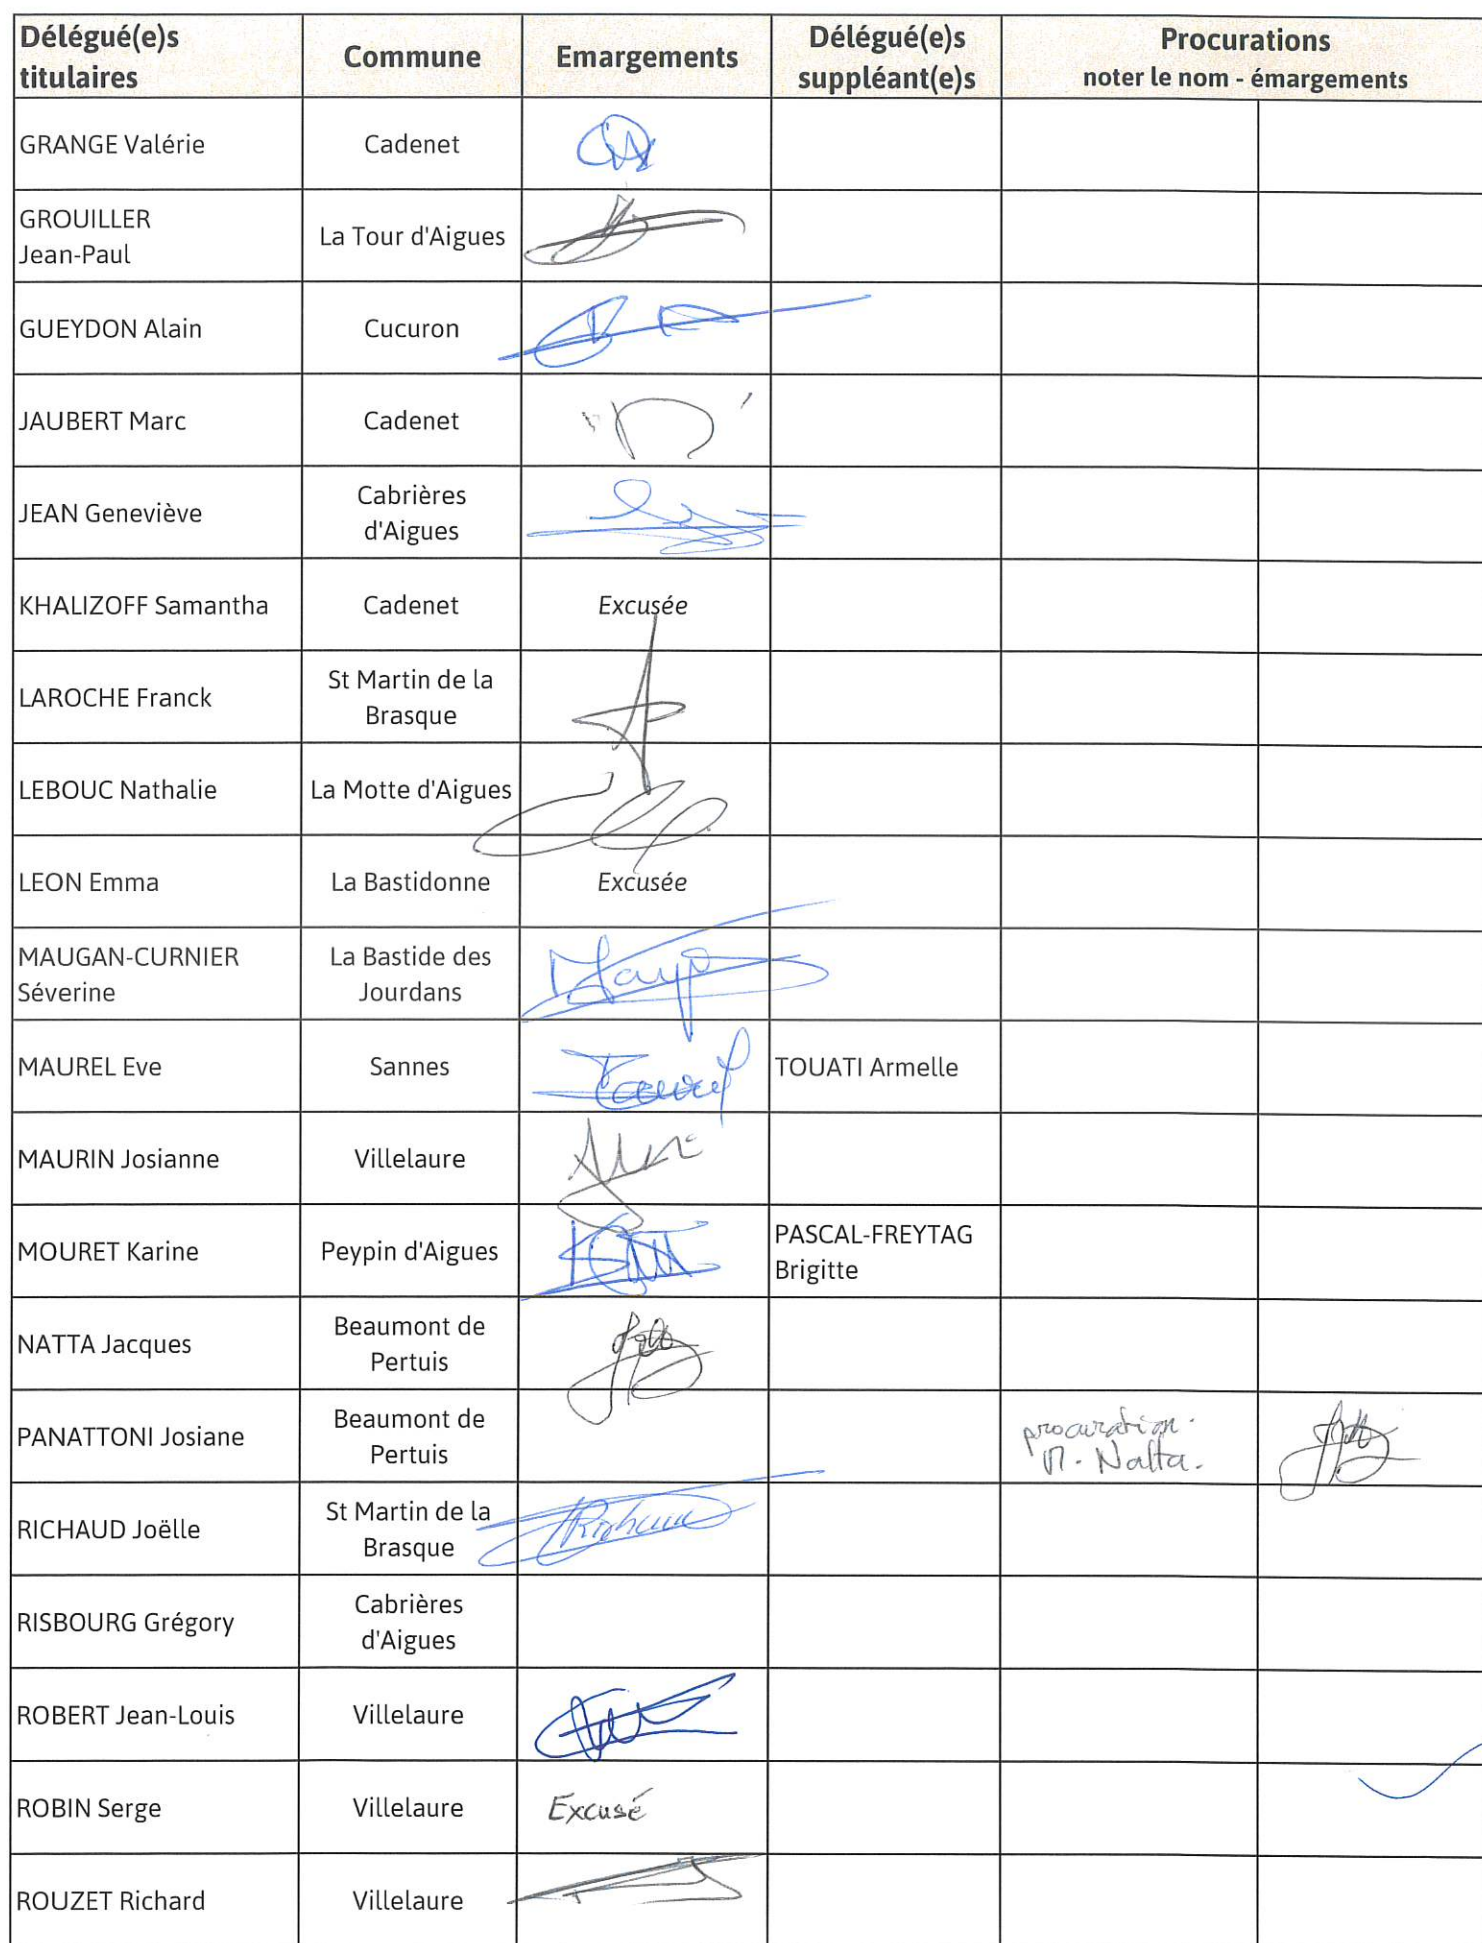 Délégué(e)s titulaires
Commune
Emargements
Délégué(e)s suppléant(e)s
Procurations
noter le nom - émargements
GRANGE Valérie
Cadenet
GROUILLER
Jean-Paul
La Tour d'Aigues
GUEYDON Alain
Cucuron
JAUBERT Marc
Cadenet
JEAN Geneviève
Cabrières
d'Aigues
KHALIZOFF Samantha
Cadenet
Excusée
LAROCHE Franck
St Martin de la
Brasque
LEBOUC Nathalie
La Motte d'Aigues
LEON Emma
La Bastidonne
Excusée
MAUGAN-CURNIER
Séverine
La Bastide des
Jourdans
MAUREL Eve
Sannes
TOUATI Armelle
MAURIN Josianne
Villelaure
MOURET Karine
Peypin d'Aigues
PASCAL-FREYTAG
Brigitte
NATTA Jacques
Beaumont de
Pertuis
PANATTONI Josiane
Beaumont de
Pertuis
procuration.
M. Natta.
RICHAUD Joëlle
St Martin de la
Brasque
RISBOURG Grégory
Cabrières
d'Aigues
ROBERT Jean-Louis
Villelaure
ROBIN Serge
Villelaure
Excusé
ROUZET Richard
Villelaure